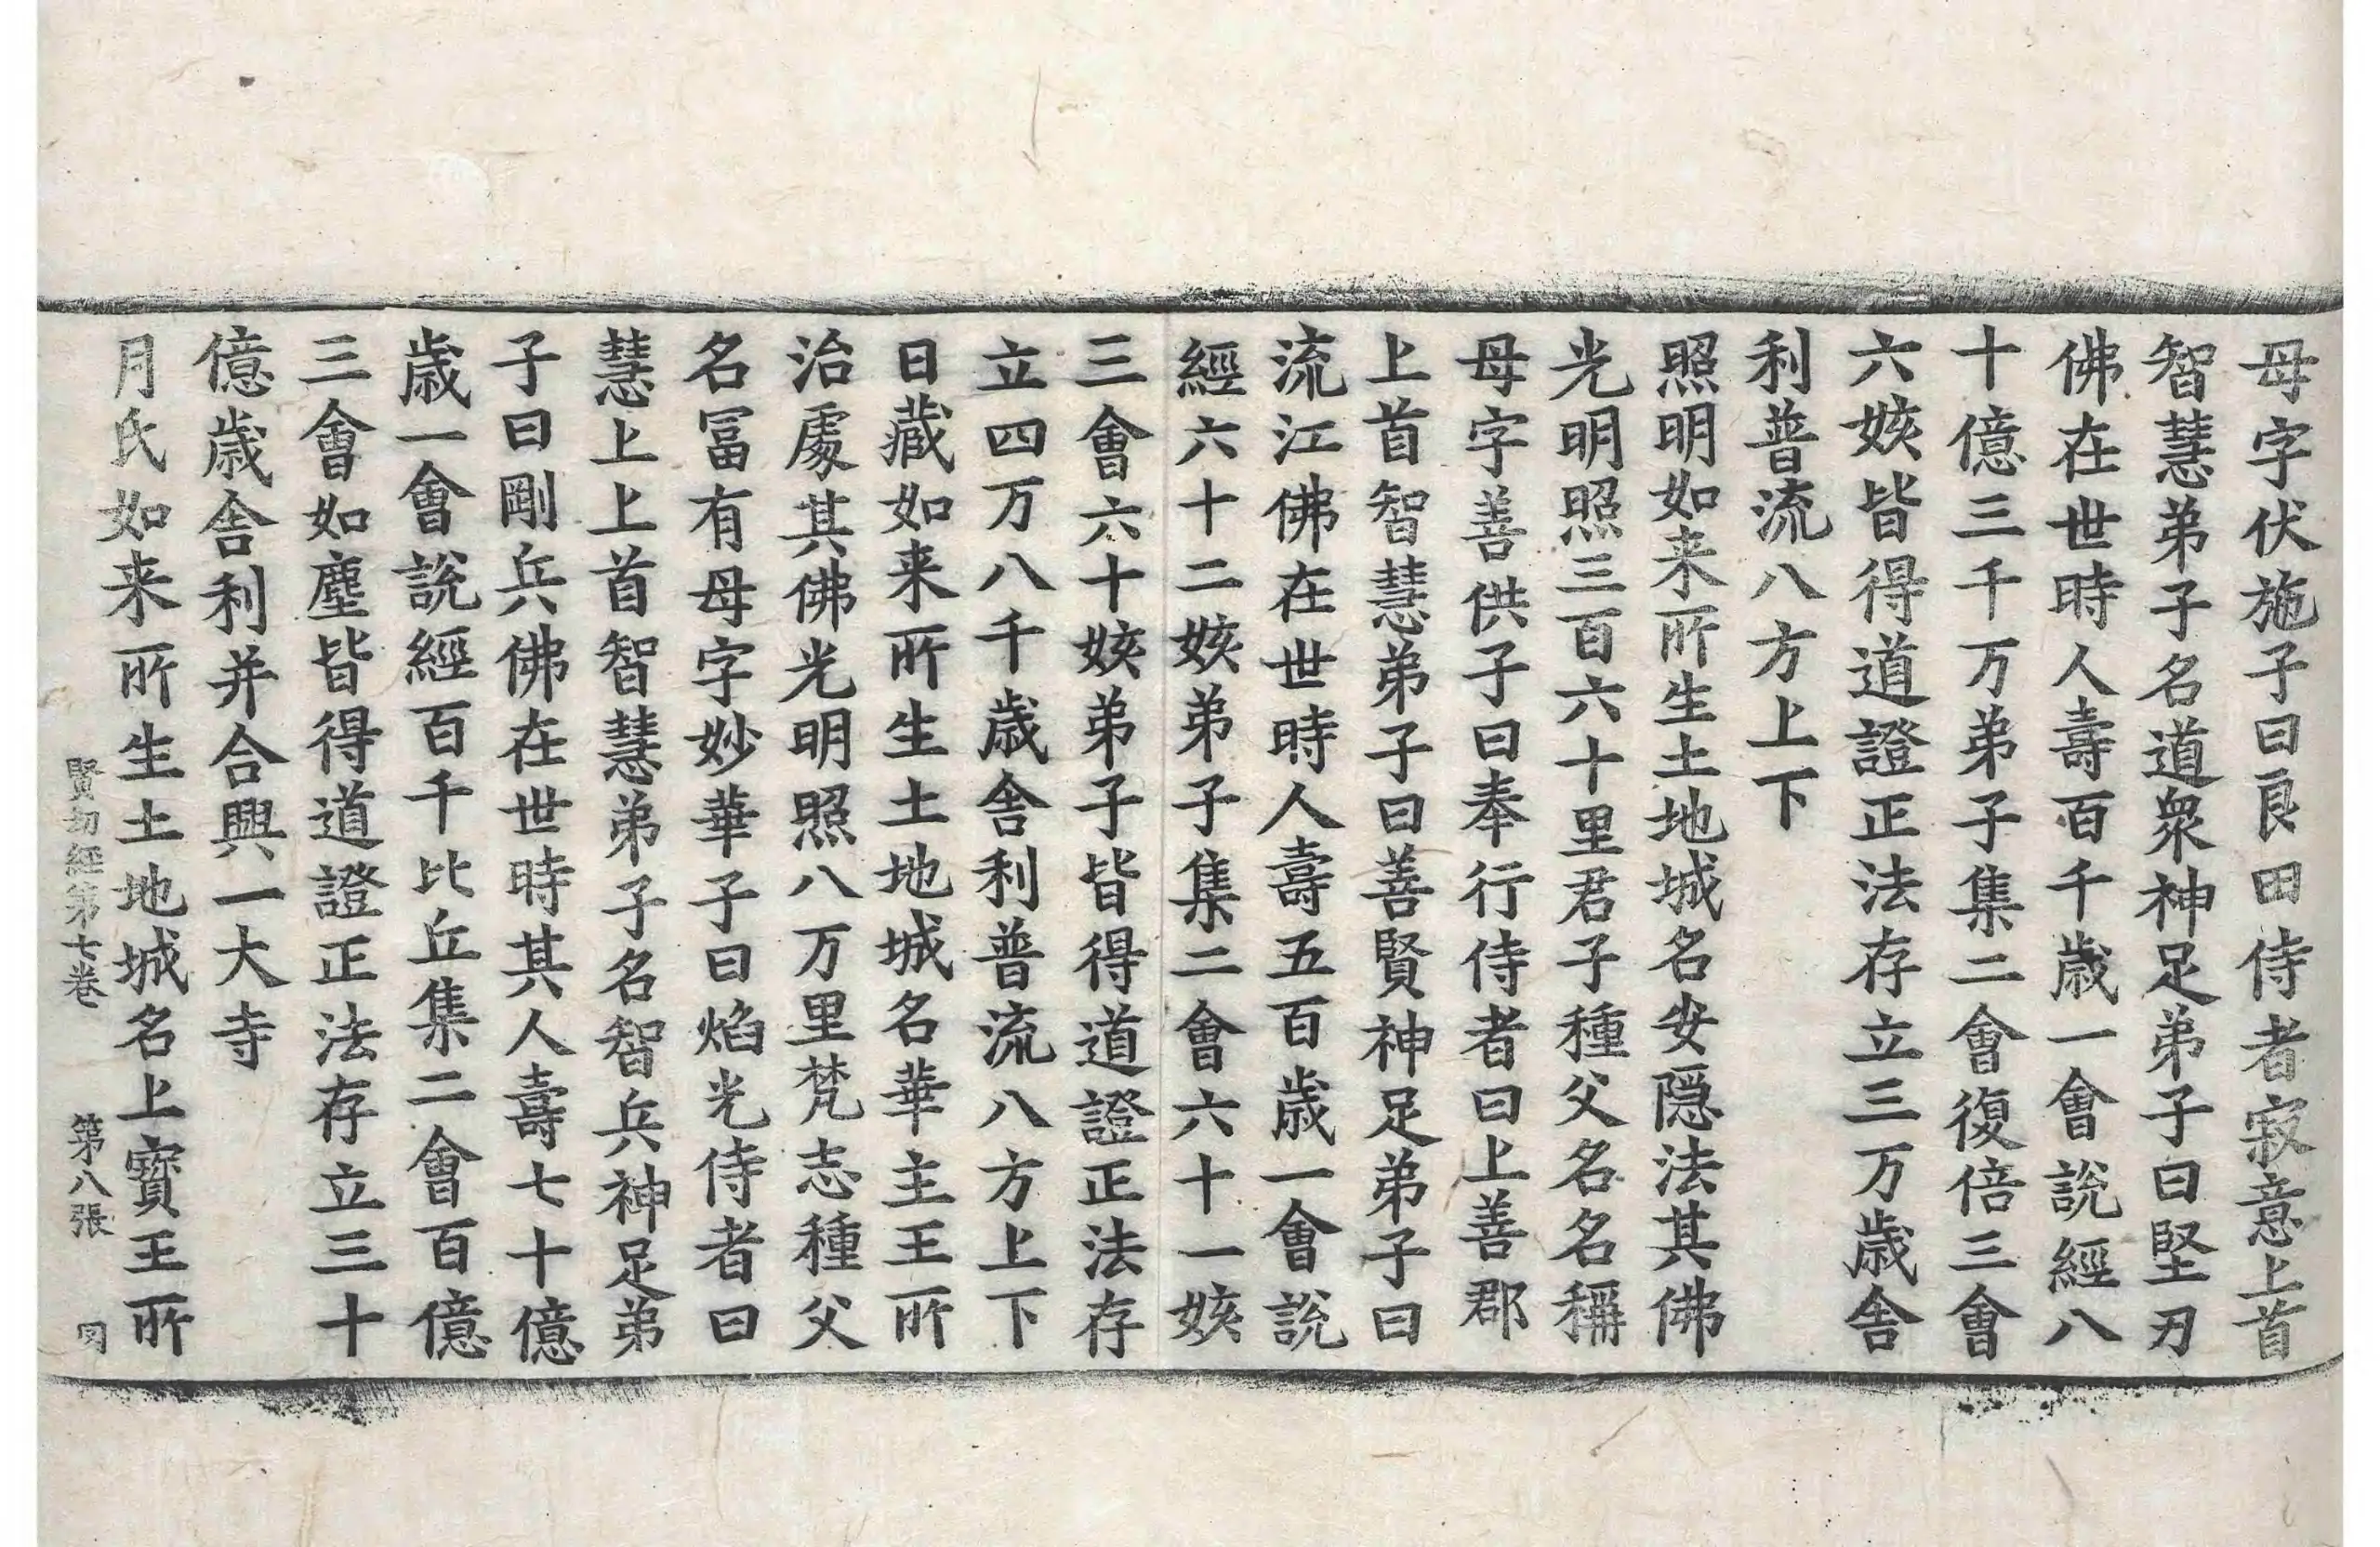 母字伏施子曰良田侍者寂意上首
智慧弟子名道衆神足弟子曰堅刃
佛在世時人壽百千歳一會說經八
十億三千万弟子集二會復倍三會
六姟皆得道證正法存立三万歳舍
利普流八方上下
照明如来所生土地城名安隠法其佛
光明照三百六十里君子種父名名稱
母字善供子曰奉行侍者曰上善郡
上首智慧弟子曰善賢神足弟子曰
流江佛在世時人壽五百歳一會說
經六十二姟弟子集二會六十一姟
三會六十姟弟子皆得道證正法存
立四万八千歳舍利普流八方上下
日藏如来所生土地城名華主王所
治處其佛光明照八万里梵志種父
名冨有母字妙華子曰焰光侍者曰
慧上上首智慧弟子名智兵神足弟
子曰剛兵佛在世時其人壽七十億
歳一會說經百千比丘集二會百億
三會如塵皆得道證正法存立三十
億歳舍利并合興一大寺
月氏如来所生土地城名上寳王所
賢劫經第七卷 第八張 同